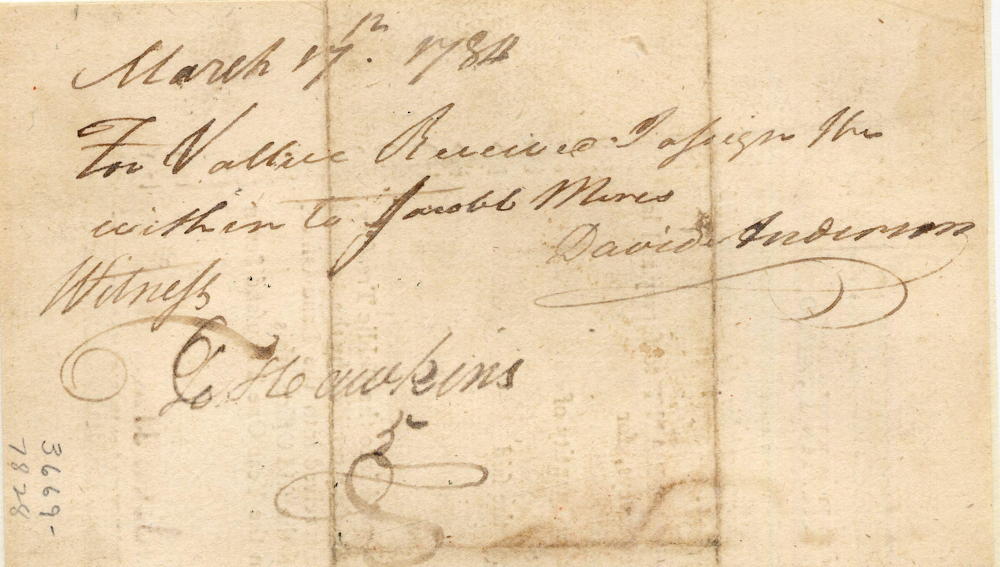 March 17th. 1784
For Vallue Received I assign the
within to Jacobb Mires
David Anderson
Witness
Hawkins
3669-
7828